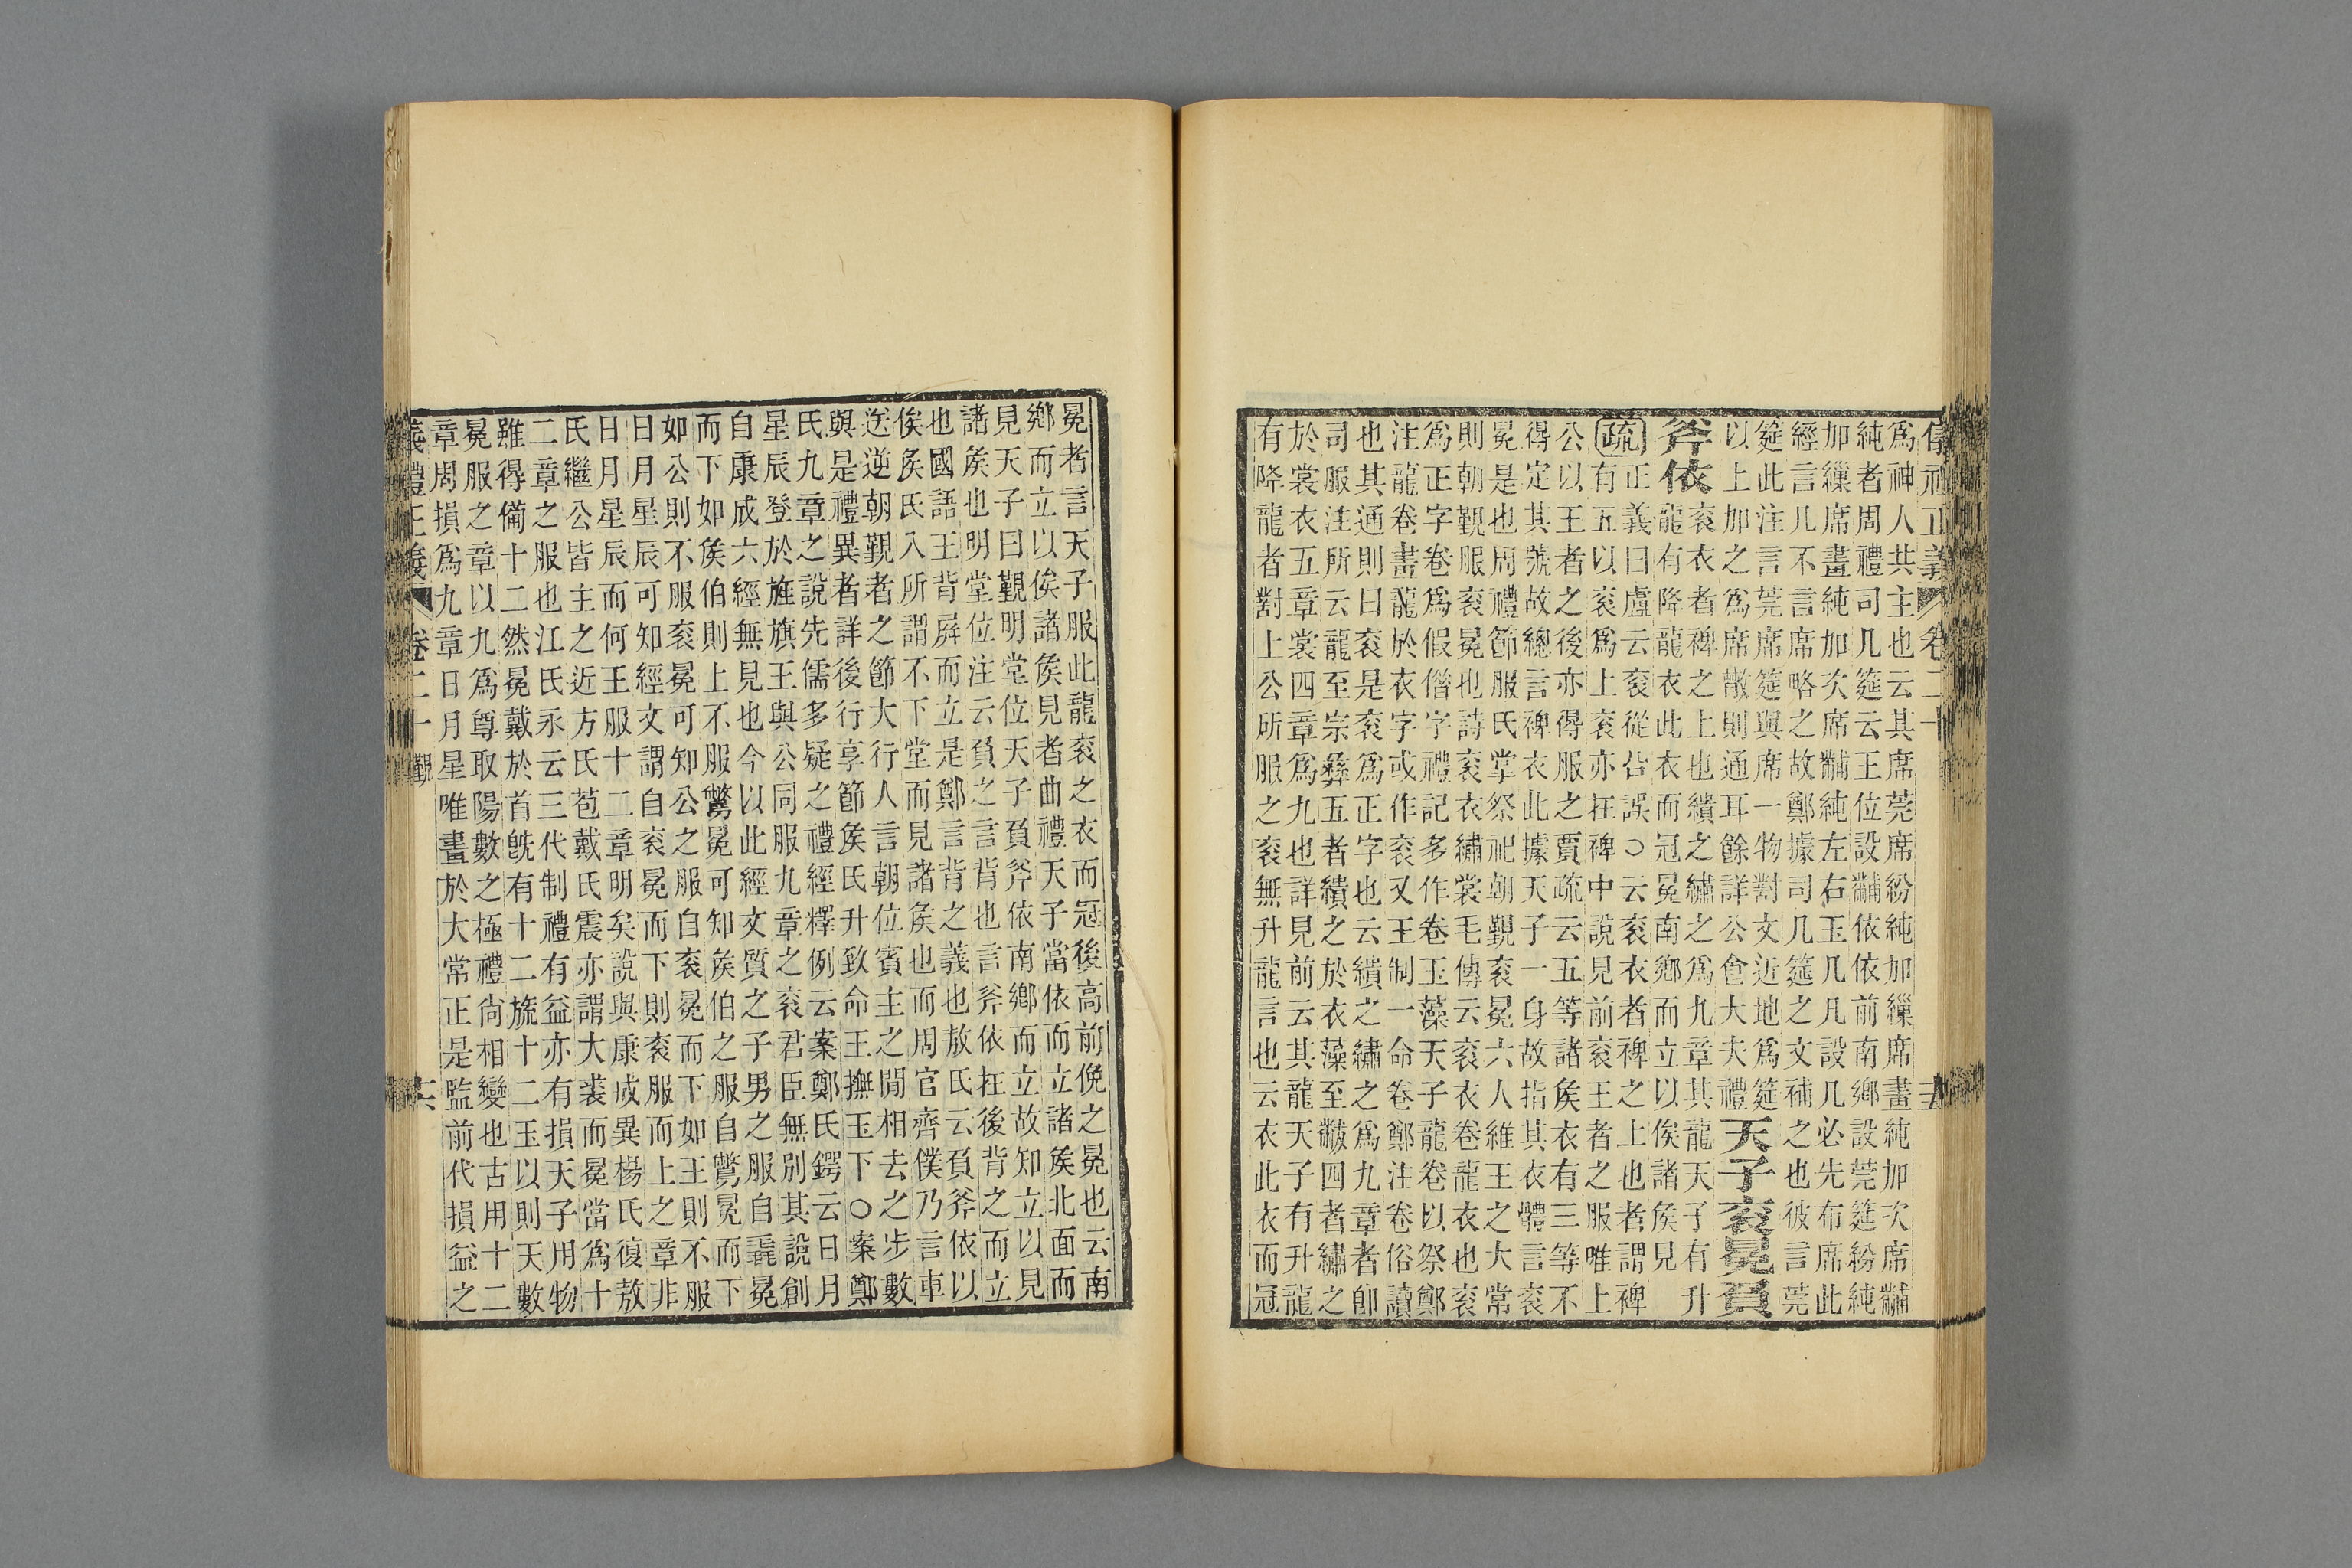 儀禮正義 卷二十
爲神人共主也云其席莞席紛純加繅席畫純加次席黼
純者周禮司几筵云王位設黼依依前南鄉設莞筵紛純
加繅席畫純加次席黼純左右玉几凡設几必先布席此
經言几不言席略之故鄭據司几筵之文補之也彼言莞
筵此注言莞席筵與席一物對文近地爲筵
以上加之爲席散則通耳餘詳公食大夫禮
天子衮冕負
斧依
衮衣者裨之上也繢之繡之爲九章其龍天子有升
龍有降龍衣此衣而冠冕南鄉而立以俟諸侯見
疏
正義曰盧云衮從㕣誤○云衮衣者裨之上也者謂裨
有五以衮爲上衮亦在裨中說見前衮王者之服唯上
公以王者之後亦得服之賈疏云五等諸侯衣有三等不
得定其號故總言裨衣此據天子一身故指其衣體言衮
冕是也周禮節服氏掌祭祀朝覲衮冕六人維王之大常
則朝覲服衮冕也詩衮衣繡裳毛傳云衮衣卷龍衣也衮
爲正字卷爲假借字禮記多作卷玉藻天子龍卷以祭鄭
注龍卷畫龍於衣字或作衮又王制一命卷鄭注卷俗讀
也其通則曰衮是衮爲正字也云繢之繡之爲九章者卽
司服注所云龍至宗彝五者繢之於衣藻至黻四者繡之
於裳衣五章裳四章爲九也詳見前云其龍天子有升龍
有降龍者對上公所服之衮無升龍言也云衣此衣而冠
冕者言天子服此龍衮之衣而冠後高前俛之冕也云南
鄉而立以俟諸侯見者曲禮天子當依而立諸侯北面而
見天子曰覲明堂位天子負斧依南鄉而立故知立以見
諸侯也明堂位注云負之言背也言斧依在後背之而立
也國語王背屏而立是鄭言背之義也敖氏云負斧依以
俟侯氏入所謂不下堂而見諸侯也而周官齊僕乃言車
送逆朝覲者之節大行人言朝位賓主之閒相去之步數
與是禮異者詳後行享節侯氏升致命王撫玉下○案鄭
氏九章之說先儒多疑之禮經釋例云案鄭氏鍔云日月
星辰登於旌旗王與公同服九章之衮君臣無別其說創
自康成六經無見也今以此經文質之子男之服自毳冕
而下如侯伯則上不服鷩冕可知侯伯之服自鷩冕而下
如公則不服衮冕可知公之服自衮冕而下如王則不服
日月星辰可知經文謂自衮冕而下則衮服而上之章非
日月星辰而何王服十二章明矣說與康成異楊氏復敖
氏繼公皆主之近方氏苞戴氏震亦謂大裘而冕當爲十
二章之服也江氏永云三代制禮有益亦有損天子用物
雖得備十二然冕戴於首旣有十二旒十二玉以則天數
冕服之章以九爲尊取陽數之極禮尚相變也古用十二
章周損爲九章日月星唯畫於大常正是監前代損益之
儀禮正義 卷二十 覲 十六